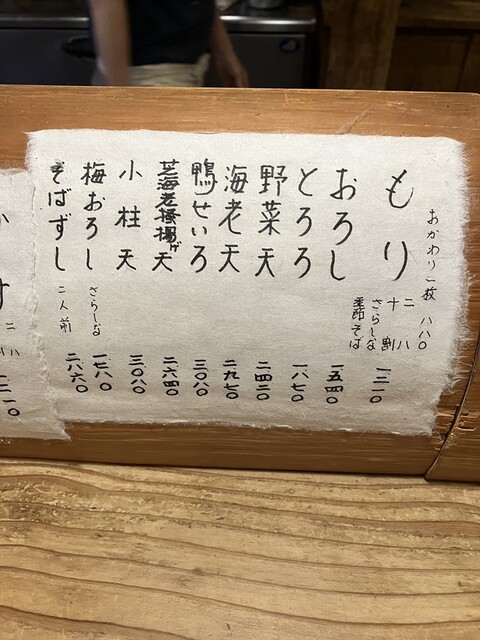 おかわり一枚 八八〇
もり 二八 十割 さらしな 季節そば 一二一〇
おろし 一五四〇
とろろ 一八七〇
野菜天 二四二〇
海老天 二九七〇
鴨せいろ 三〇八〇
芝海老掻揚げ天 二六四〇
小柱天 三〇八〇
梅おろし さらしな 一七六〇
そばずし 二人前 二八六〇
二八 一二一〇